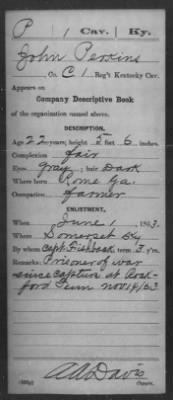 P | 1 | Cav. | Ky.
John Perkins
Co. C 1 Reg't Kentucky Cav.
Appears on
Company Descriptive Book
of the organization named above.
DESCRIPTION.
Age 22 years; height 5 feet 6 inches.
Complexion fair
Eyes gray; hair Dark
Where born Rome Ga.
Occupation farmer
ENLISTMENT.
When June 1, 1863.
Where Somerset Ky
By whom Capt. Fishback term 3 y'rs.
Remarks: Prisoner of war
since capture at Rock-
ford Tenn Nov 14/63
A A Davis
Copyist.